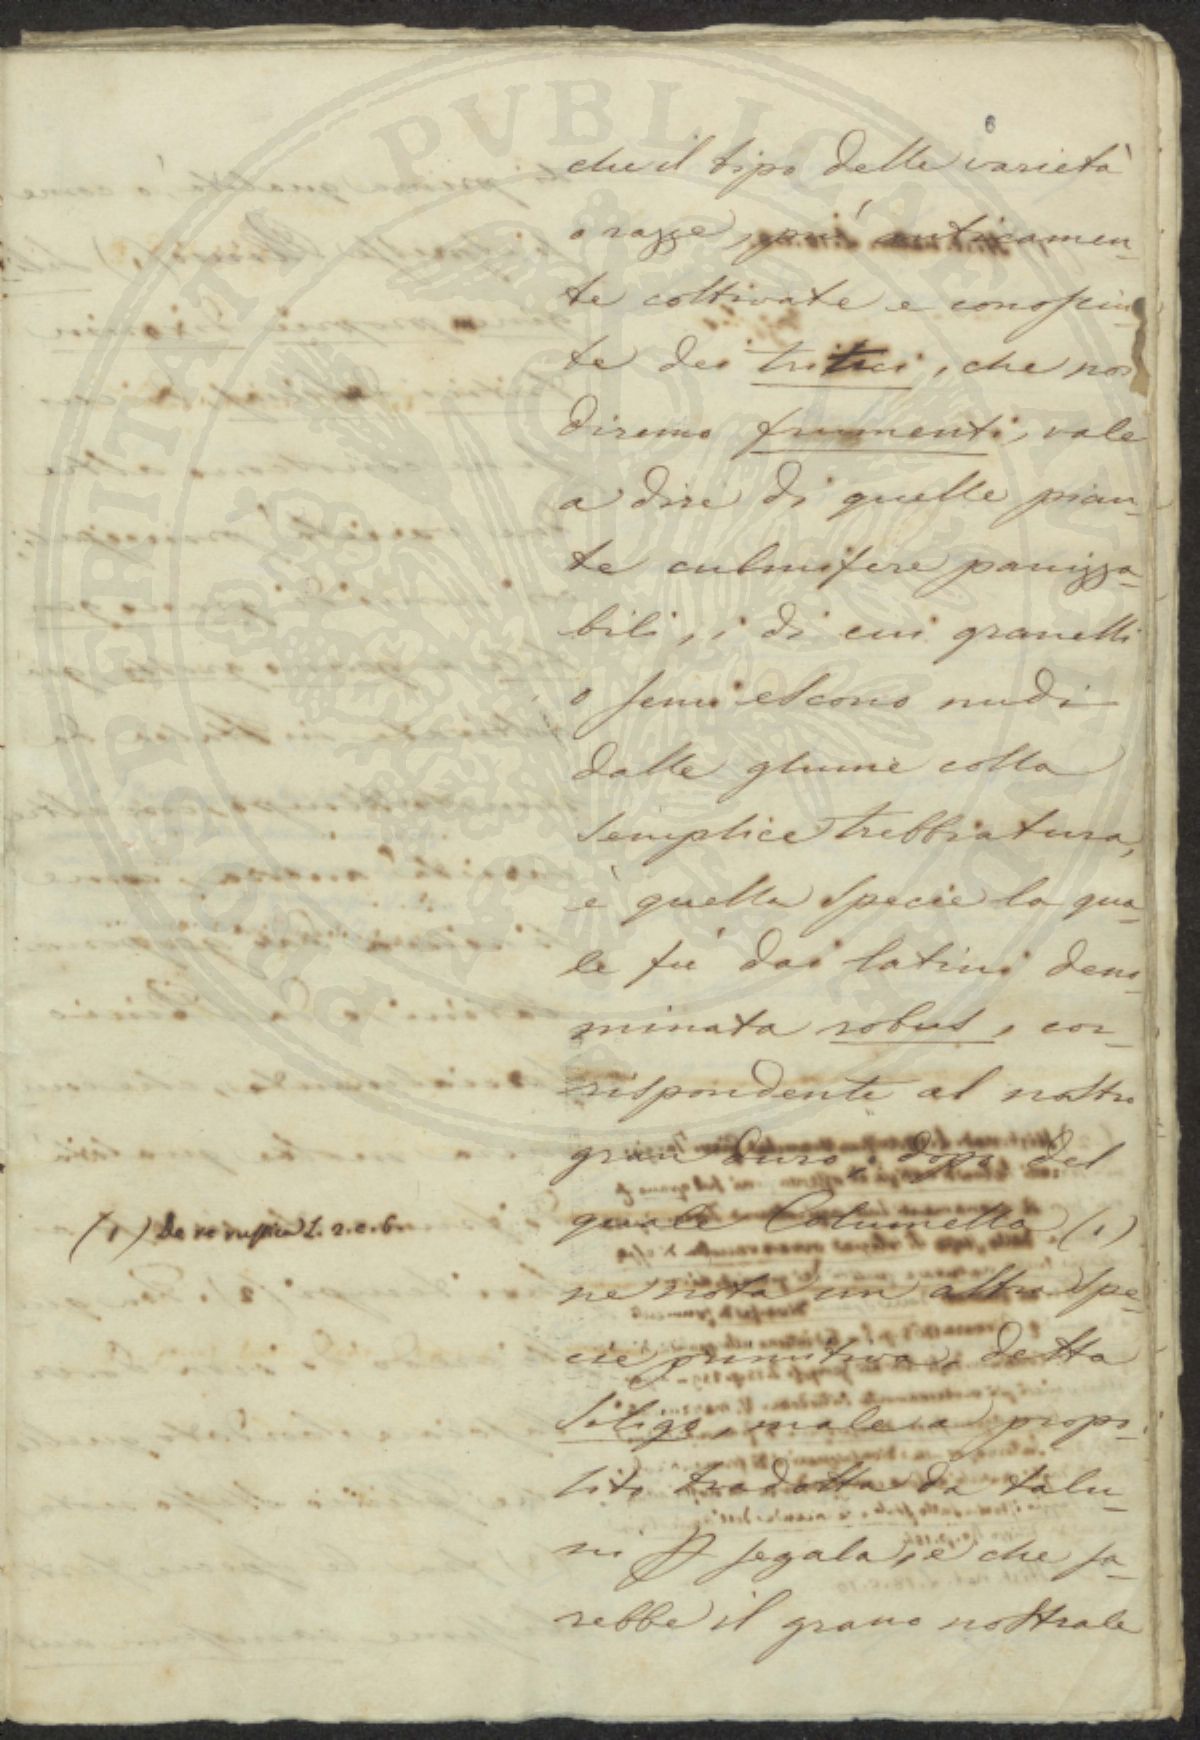 6
che il tipo delle varietà
o razze, più anticamen-
te coltivate e conosciu-
te dei tritici, che noi
diremo frumenti, vale
a dire di quelle pian-
te culmifere panizza-
bili, i di cui granelli
o semi escono nudi
dalle glume colla
semplice trebbiatura,
è quella specie la qua-
le fù dai latini deno-
minata robus, cor-
rispondente al nostro
gran duro, dopo del
quale Columella (1)
ne nota un altra spe-
cie primitiva, detta
Siligo, male a propo-
sito tradotta da talu-
ni segala, e che sa-
rebbe il grano nostrale
(1) De re rustica L. 2. c. 6.
PROSPERITATI PUBLICAE AUGENDAE